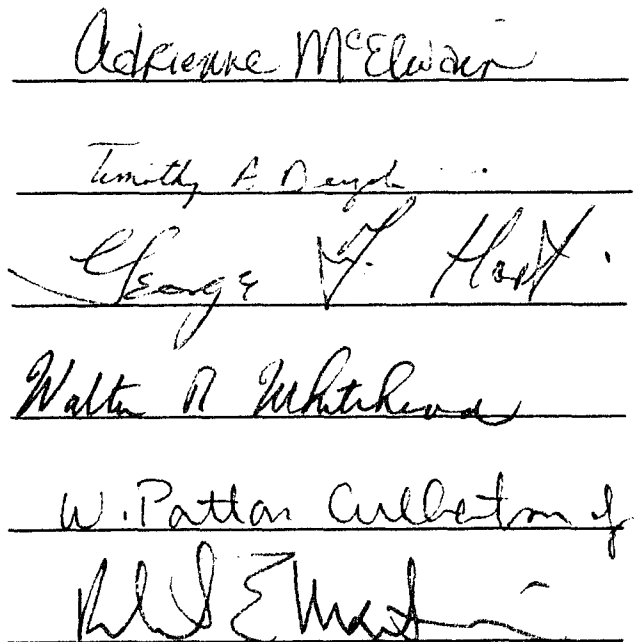 Adrienne McElwain
Timothy A
George F. Hart
Walter R Whitehead
W. Patton Culbertson Jr
E Martin